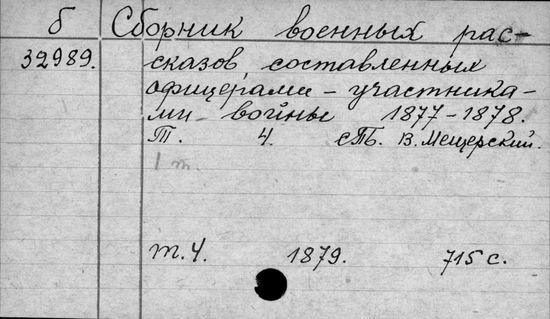 б Сборник военных рас-
32989. сказов, составленных
офицерами - участника-
ми войны 1877-1878.
Т. 4. СПБ. В. Мещерский.
1 т.
т. 4. 1879. 715 с.